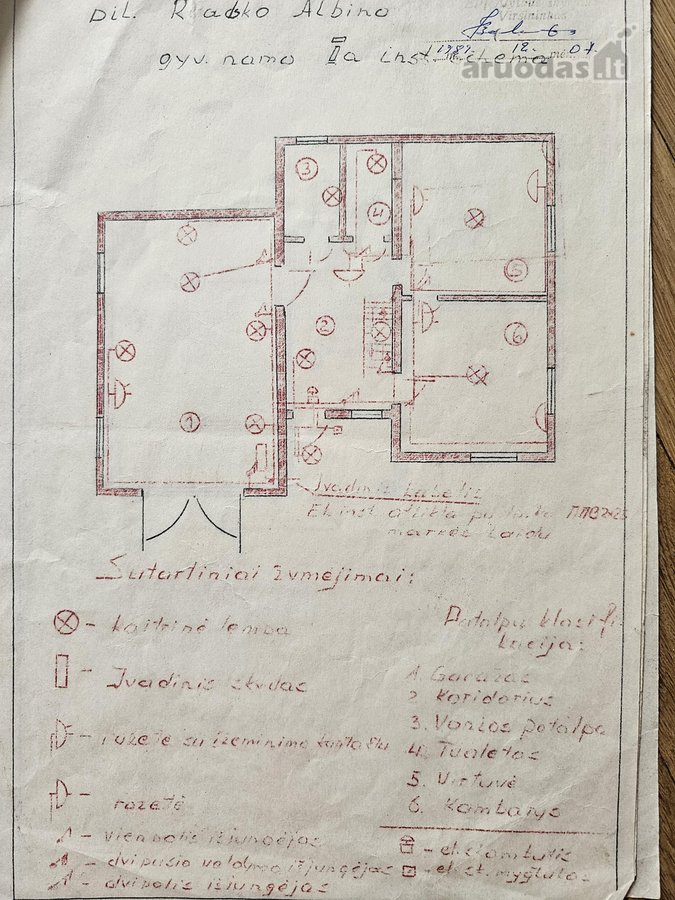 pil. Albino
gyv. namo IIa inst. schema
1987. 12. 07.
aruodas.lt
3
4
5
2
6
1
Įvadinis kabelis
El. inst. atlikta
markės laidu
Sutartiniai žymėjimai:
- kaitrinė lempa
- Įvadinis skydas
- rozetė su įžeminimo kontaktu
- rozetė
- vienpolis išjungėjas
- dvipusio valdymo išjungėjas
- dvipolis išjungėjas
Patalpų klasifi-
kacija:
1. Garažas
2. Koridorius
3. Vonios patalpa
4. Tualetas
5. Virtuvė
6. Kambarys
- el. skambutis
- el. sk. mygtukas